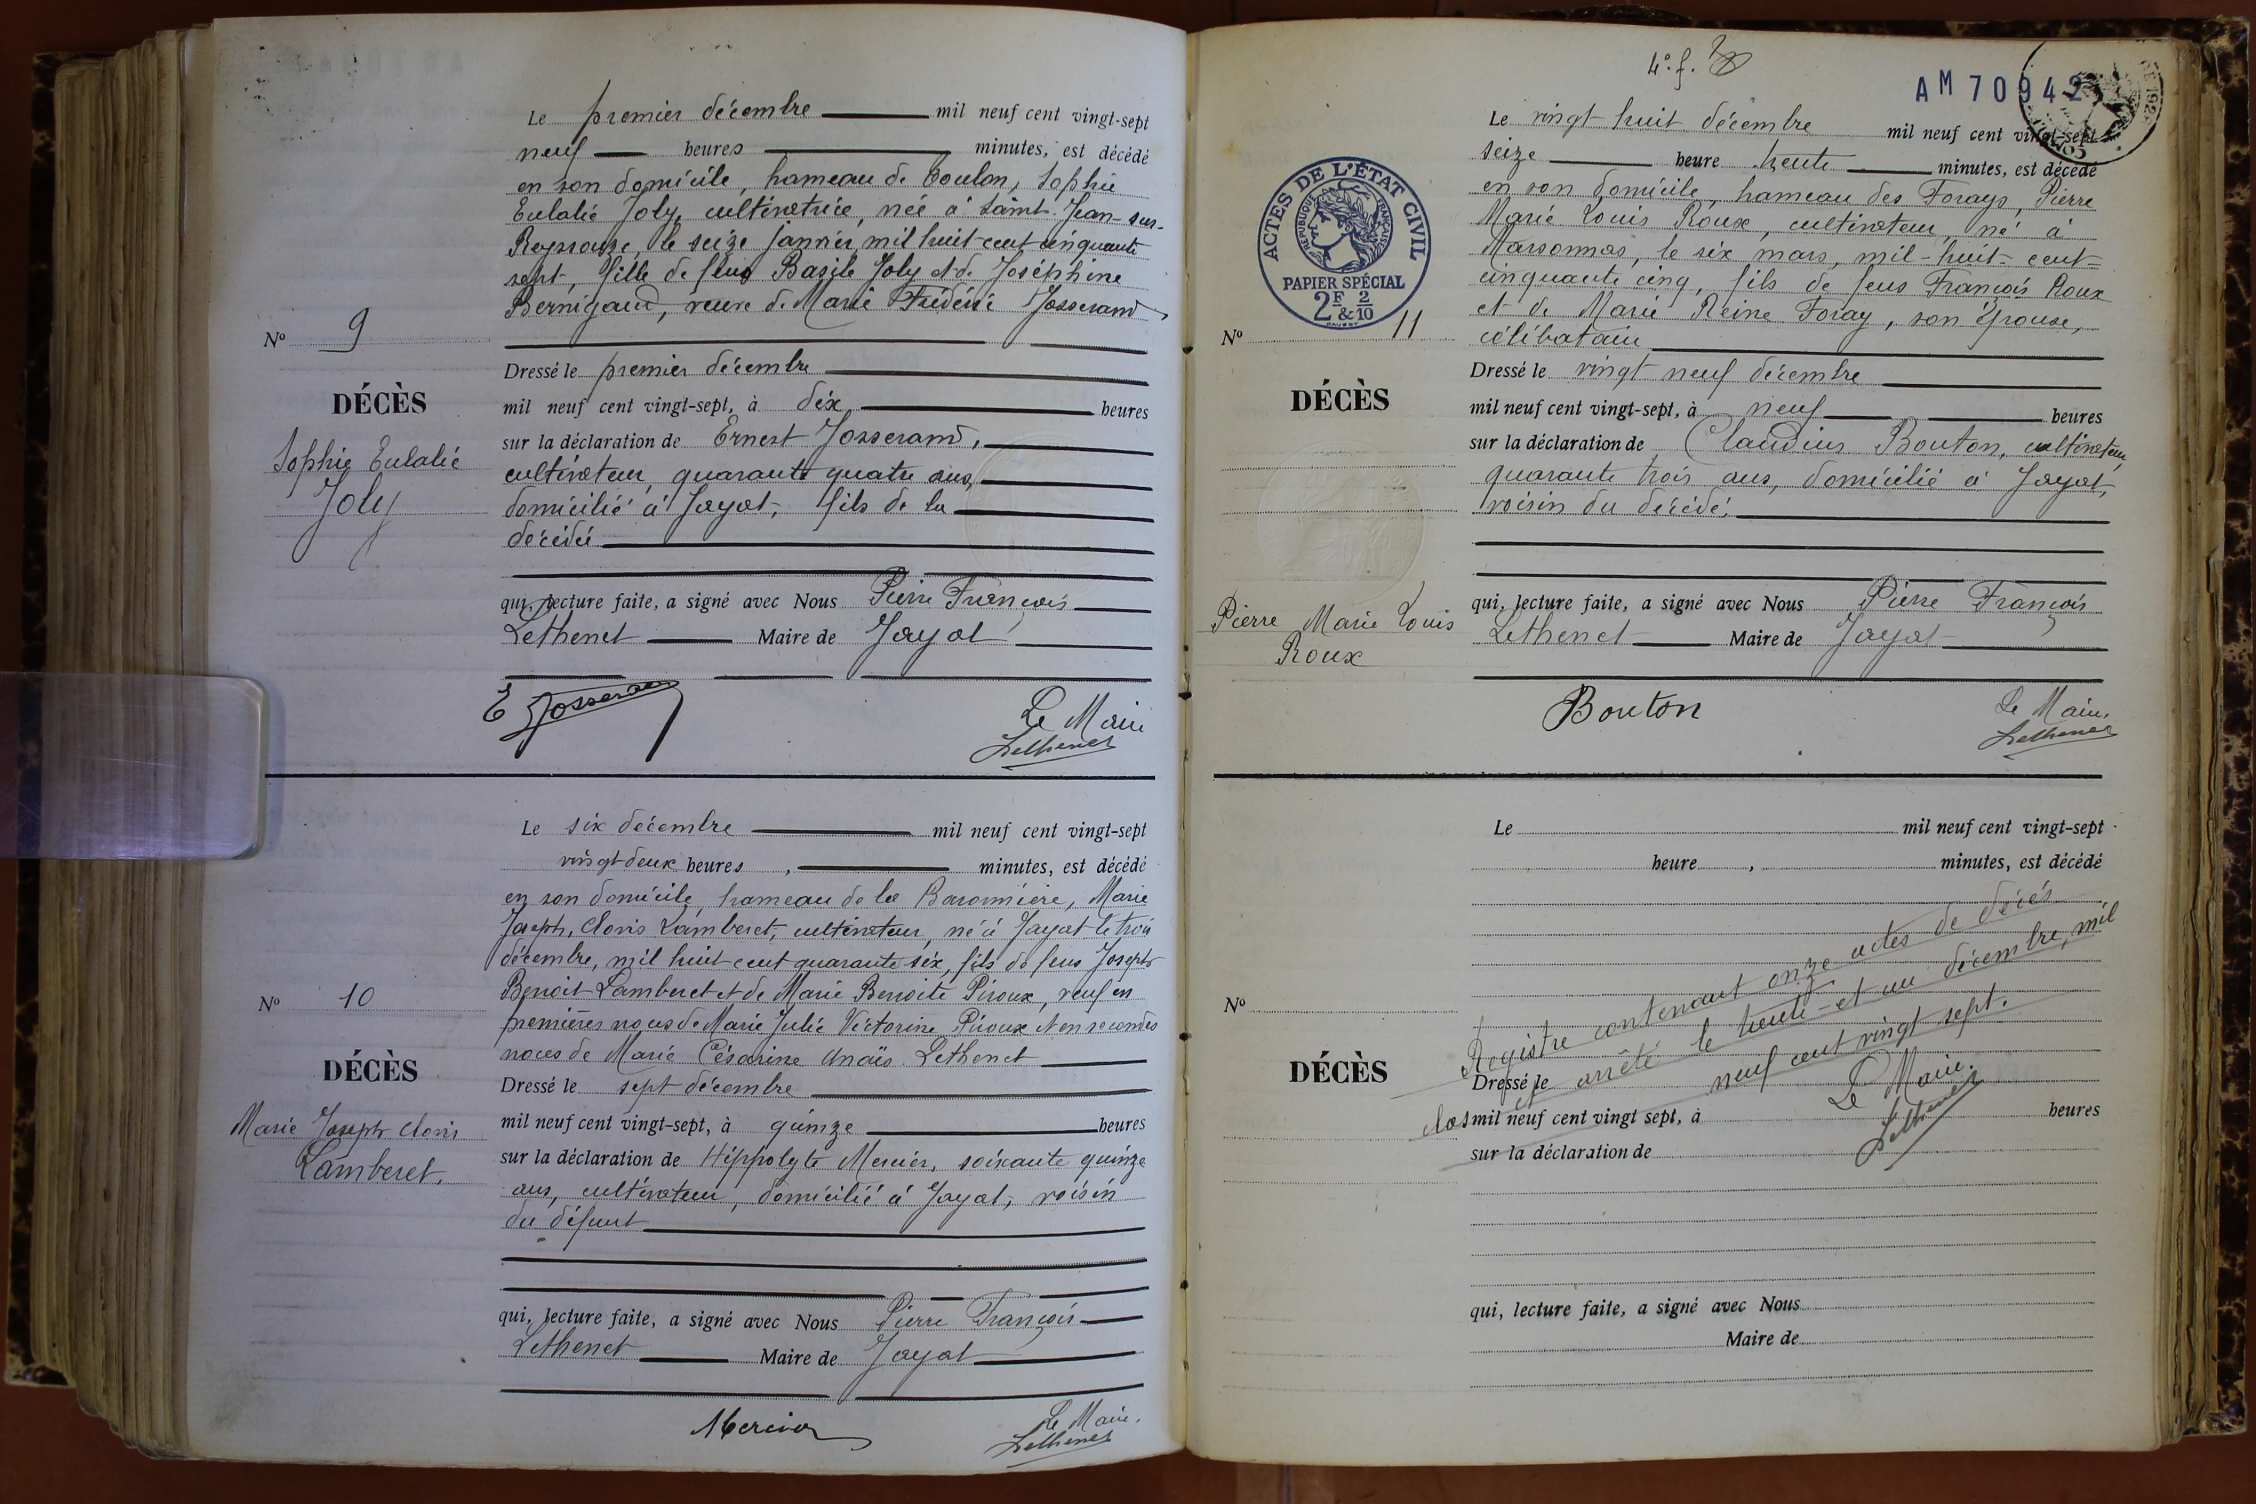 Le premier décembre mil neuf cent vingt-sept
neuf heures minutes, est décédé
en son domicile, hameau de Toulon, Sophie
Eulalie Joly, cultivatrice, née à Saint-Jean-sur-
Reyssouze, le seize janvier, mil huit-cent cinquante
sept, fille de feus Basile Joly et de Joséphine
Bernigaud, veuve de Marie Frédéric Josserand
No 9
DÉCÈS
Sophie Eulalie
Joly
Dressé le premier décembre
mil neuf cent vingt-sept, à dix heures
sur la déclaration de Ernest Josserand,
cultivateur, quarante quatre ans,
domicilié à Jayat, fils de la
décédée
qui, lecture faite, a signé avec Nous Pierre François
Lethenet Maire de Jayat
E Josserand
Le Maire
Lethenet
Le six décembre mil neuf cent vingt-sept
vingt deux heures, minutes, est décédé
en son domicile, hameau de la Baronnière, Marie
Joseph, Clovis Lamberet, cultivateur, né à Jayat le trois
décembre, mil huit cent quarante six, fils de feus Joseph
Benoit Lamberet et de Marie Benoite Piroux, veuf en
premières noces de Marie Julie Victorine Piroux et en secondes
noces de Marie Césarine Anaïs Lethenet
No 10
DÉCÈS
Marie Joseph Clovis
Lamberet.
Dressé le sept décembre
mil neuf cent vingt-sept, à quinze heures
sur la déclaration de Hippolyte Mercier, soixante quinze
ans, cultivateur, domicilié à Jayat, voisin
du défunt
qui, lecture faite, a signé avec Nous Pierre François
Lethenet Maire de Jayat
Mercier
Le Maire.
Lethenet
4e. f.
AM 70942
ACTES DE L'ÉTAT CIVIL
RÉPUBLIQUE FRANÇAISE
PAPIER SPÉCIAL
2F & 2/10
Le vingt huit décembre mil neuf cent vingt-sept
seize heure trente minutes, est décédé
en son domicile, hameau des Forays, Pierre
Marie Louis Roux, cultivateur, né à
Marsonnas, le six mars, mil-huit-cent-
cinquante cinq, fils de feus François Roux
et de Marie Reine Foray, son épouse,
célibataire
No 11
DÉCÈS
Pierre Marie Louis
Roux
Dressé le vingt neuf décembre
mil neuf cent vingt-sept, à neuf heures
sur la déclaration de Claudius Bouton, cultivateur,
quarante trois ans, domicilié à Jayat,
voisin du décédé.
qui, lecture faite, a signé avec Nous Pierre François
Lethenet Maire de Jayat
Bouton
Le Maire.
Lethenet
Le mil neuf cent vingt-sept
heure , minutes, est décédé
No
DÉCÈS
Registre contenant onze actes de décès
clos et arrêté le trente-et un décembre, mil
neuf cent vingt sept.
Le Maire.
Lethenet
Dressé le
mil neuf cent vingt sept, à heures
sur la déclaration de
qui, lecture faite, a signé avec Nous
Maire de